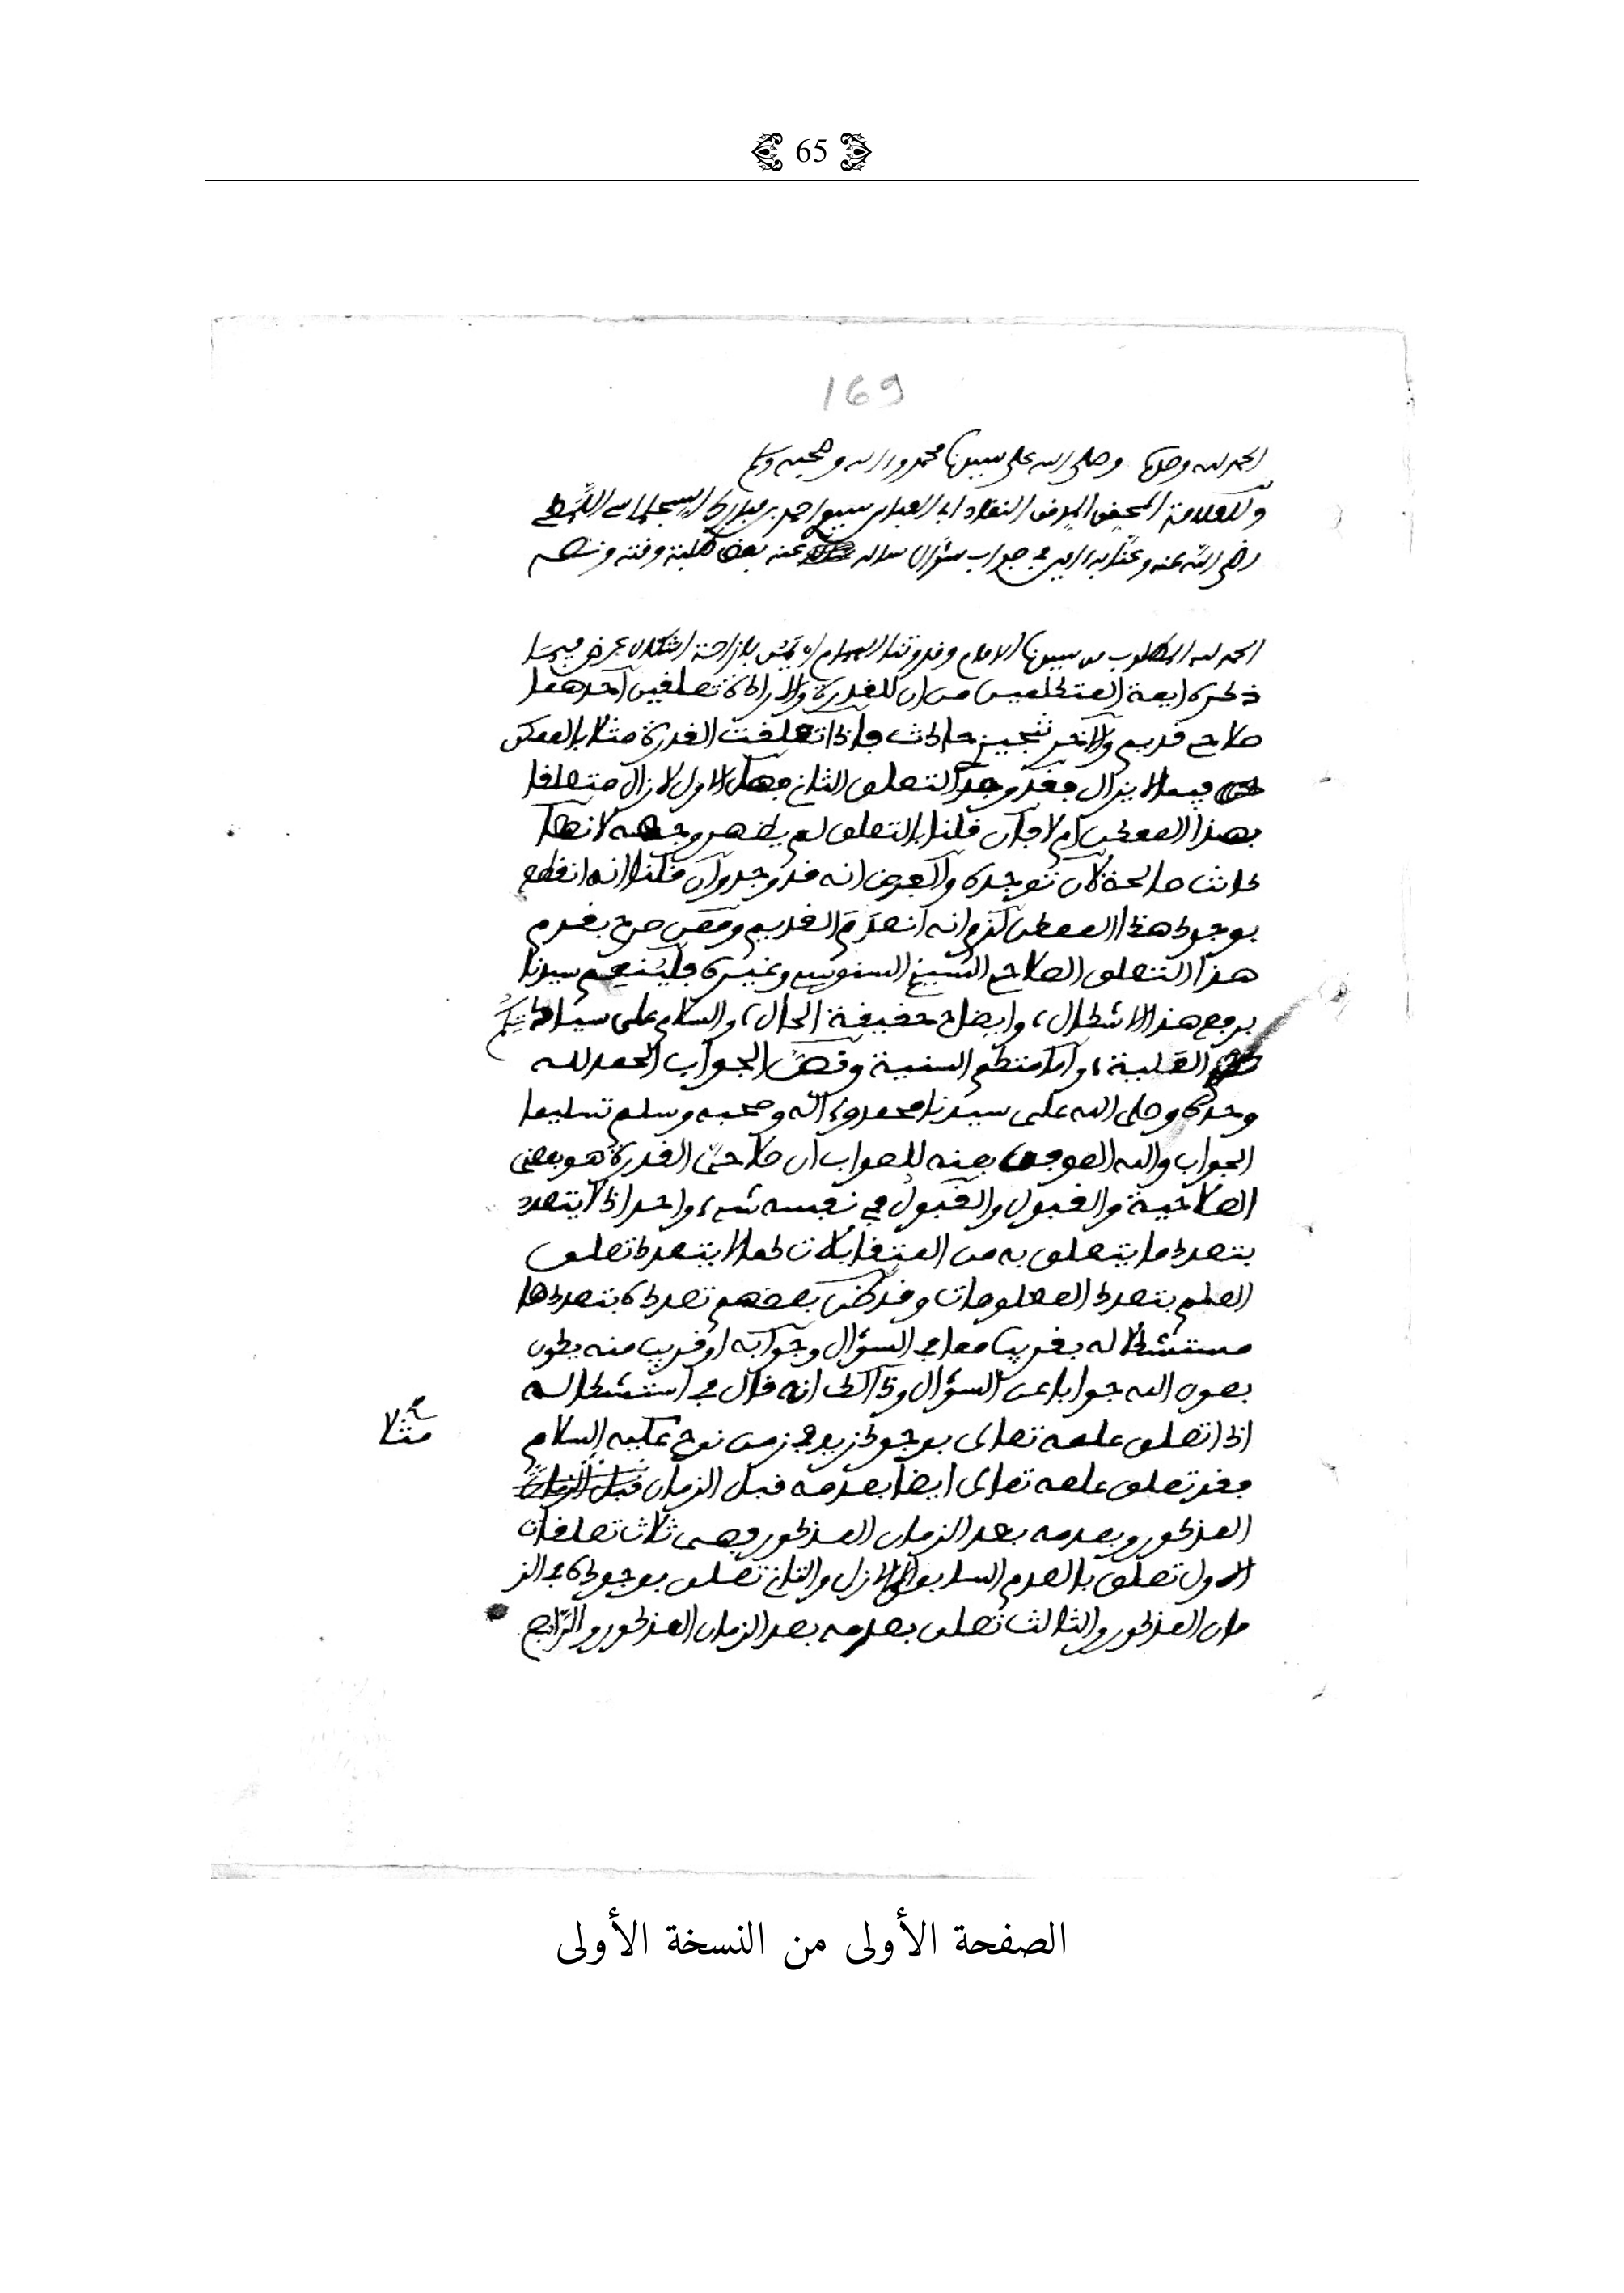 65
169
الحمد لله وحده وصلى الله على سيدنا محمد وءاله وصحبه وسلم
وللعلامة المحقق المدقق النقاد ابى العباس سيدي احمد بن مبارك السجلماسي اللمطي
رضي الله عنه وعنا به ءامين في جواب سؤال ساله عنه بعض طلبة وقته ونصه
الحمد لله المطلوب من سيدنا الامام وقدوتنا الهمام ان يمن بازاحة اشكال عرض فيما
ذكره ايمة المتكلمين من ان للقدرة والارادة تعلقين احدهما
صلاحي قديم والاخر تنجيزي حادث فاذا تعلقت القدرة مثلا بالممكن
فيما لا يزال فقد وجد التعلق الثاني فهل الاول لا زال متعلقا
بهذا الممكن ام لا فان قلنا بالتعلق لم يظهر وجهه لانها
كانت صالحة لان توجده والفرض انه قد وجد وان قلنا انه انقطع
بوجود هذا الممكن لزم انه انعدم القديم وممن صرح بقدم
هذا التعلق الصلاحي الشيخ السنوسي وغيره فلينعم سيدنا
برفع هذا الاشكال، وايضاح حقيقة الحال، والسلام على سيادتكم
العلية، واماكنكم السنية ونص الجواب الحمد لله
وحده وصلى الله على سيدنا محمد وءاله وصحبه وسلم تسليما
الجواب والله الموفق بمنه للصواب ان صلاحي القدرة هو بمعنى
الصلاحية والقبول والقبول في نفسه شيء واحد اذ لا يتعدد
بتعدد ما يتعلق به من المتقابلات كما لا يتعدد تعلق
العلم بتعدد المعلومات وقد ظن بعضهم تعدده بتعددها
مستشكلا له بقريب مما في السؤال وجوابه او قريب منه يكون
بعون الله جوابا عن السؤال وذالك انه قال في استشكاله
اذا تعلق علمه تعالى بوجود زيد في زمن نوح عليه السلام
مثلا
فقد تعلق علمه تعالى ايضا بعدمه قبل الزمان قبل الزمان
المذكور وبعدمه بعد الزمان المذكور فهي ثلاث تعلقات
الاول تعلق بالعدم السابق في الازل والثاني تعلق بوجوده في الز
مان المذكور والثالث تعلق بعدمه بعد الزمان المذكور والرابع
الصفحة الأولى من النسخة الأولى